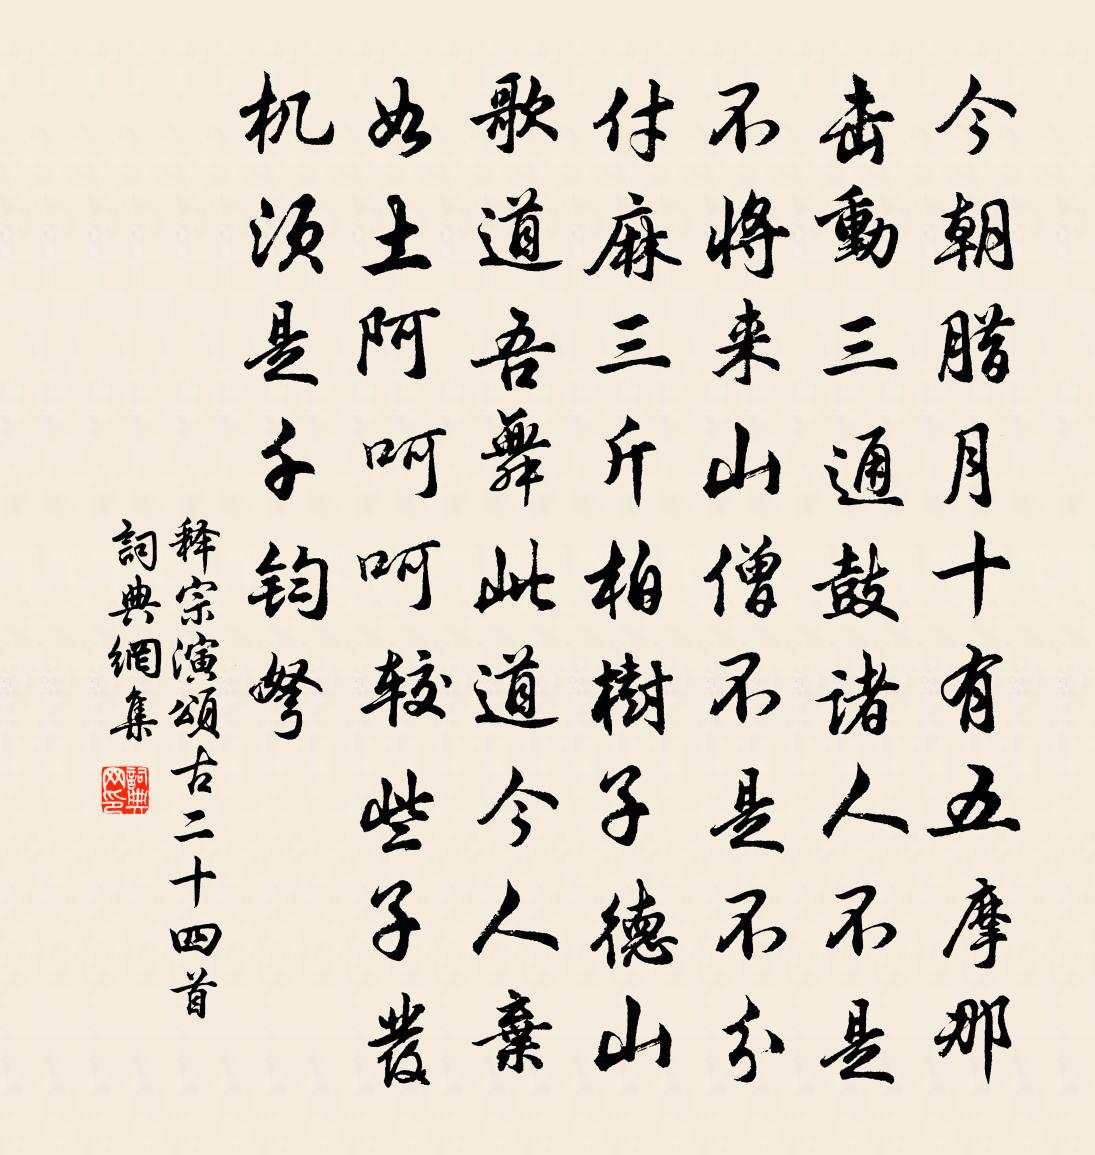 今朝腊月十有五摩那
击動三通鼓诸人不是
不将来山僧不是不分
付麻三斤柏樹子德山
歌道吾舞此道今人棄
如土阿呵呵较些子發
机须是千钧弩
释宗演頌古二十四首
詞典網集
詞典网印